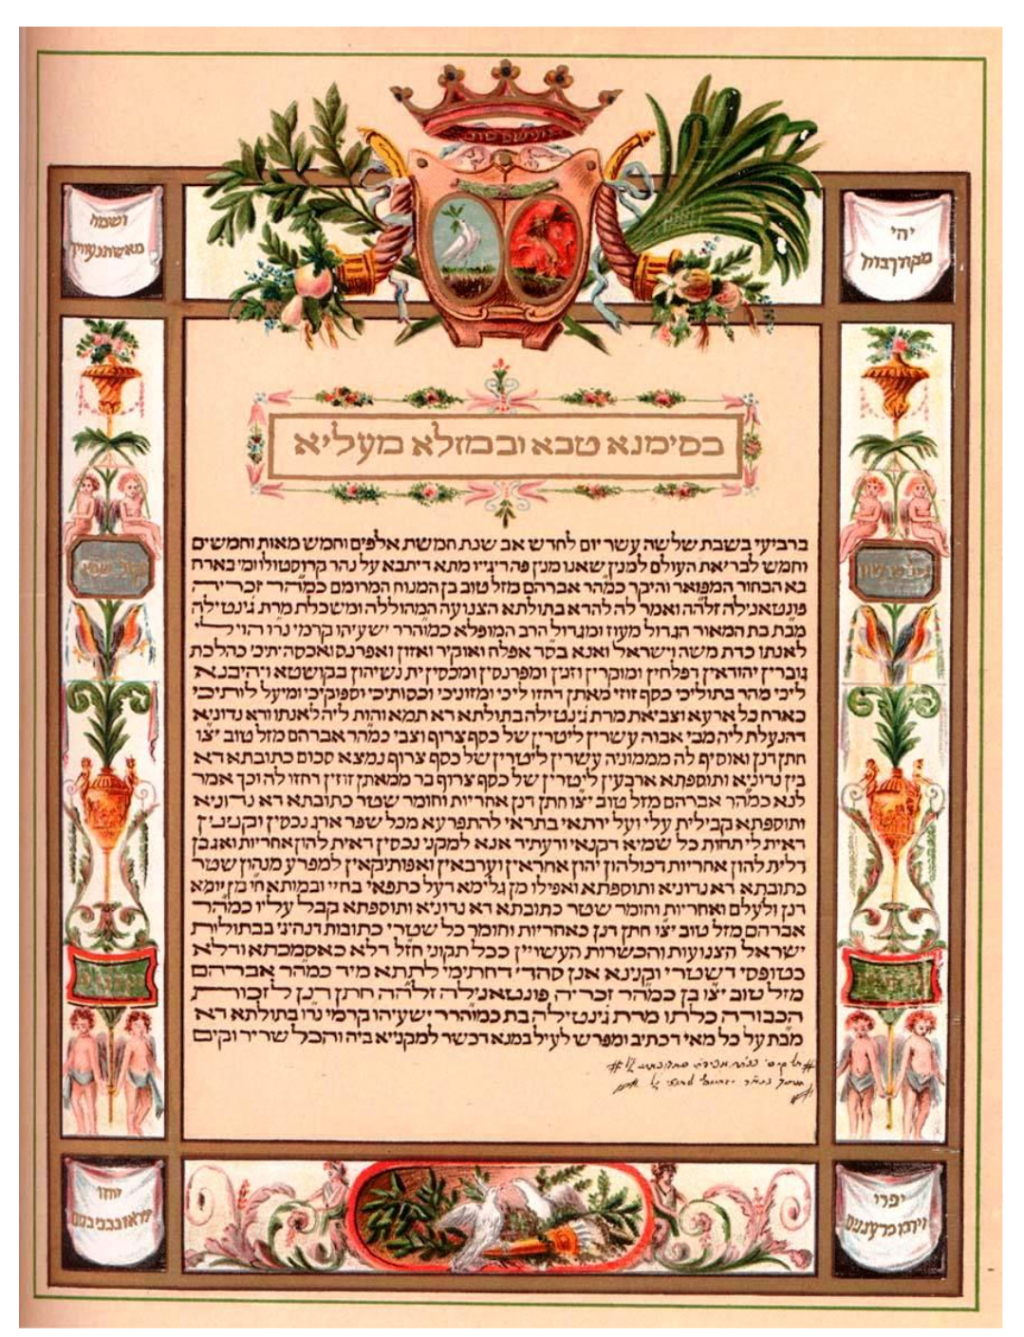 יהי
מקורך ברוך
ושמח
מאשת נעוריך
בסימנא טבא ובמזלא מעליא
ברביעי בשבת שלשה עשר יום לחדש אב שנת חמשת אלפים וחמש מאות וחמשים
וחמש לבריאת העולם למנין שאנו מנין פה ריגייו מתא דיתבא על נהר קרוסטולו ומי בארח
בא הבחור המפואר והיקר כמה״ר אברהם מזל טוב בן המנוח המרומם כמה״ר זכריה
פונטאנילה זלה״ה ואמר לה להדא בתולתא הצנועה המהוללה ומשכלת מרת ג׳ינטילה
מב״ת בת המאור הגדול מעוז ומגדול הרב המופלא כמוהר״ר ישעיהו קרמי נר״ו הוי לי
לאנתו כדת משה וישראל ואנא בס״ד אפלח ואוקיר ואזון ואפרנס ואכסה יתיכי כהלכת
גוברין יהודאין דפלחין ומוקרין וזנין ומפרנסין ומכסין ית נשיהון בקושטא ויהיבנא
ליכי מהר בתוליכי כסף זוזי מאתן דחזו ליכי ומזוניכי וכסותיכי וספוקיכי ומיעל לותיכי
כארח כל ארעא וצביאת מרת ג׳ינטילה בתולתא דא תמא והות ליה לאנתו ודא נדוניא
דהנעלת ליה מבי אבוה עשרין ליטרין של כסף צרוף וצבי כמה״ר אברהם מזל טוב יצ״ו
חתן דנן ואוסיף לה מממוניה עשרין ליטרין של כסף צרוף נמצא סכום כתובתא דא
בין נדוניא ותוספתא ארבעין ליטרין של כסף צרוף בר ממאתן זוזין דחזו לה וכך אמר
לנא כמה״ר אברהם מזל טוב יצ״ו חתן דנן אחריות וחומר שטר כתובתא דא נדוניא
ותוספתא קבילית עלי ועל ירתאי בתראי להתפרעא מכל שפר ארג נכסין וקנינין
דאית לי תחות כל שמיא דקנאי ודעתיד אנא למקני נכסין דאית להון אחריות ואגבן
דלית להון אחריות דכולהון יהון אחראין וערבאין ואפותיקאין למפרע מנהון שטר
כתובתא דא נדוניא ותוספתא ואפילו מן גלימא דעל כתפאי בחיי ובמותא מן יומא
דנן ולעלם ואחריות וחומר שטר כתובתא דא נדוניא ותוספתא קבל עליו כמה״ר
אברהם מזל טוב יצ״ו חתן דנן כאחריות וחומר כל שטרי כתובות דנהיגי בבתולות
ישראל הצנועות והכשרות העשויין ככל תקוני חז״ל דלא כאסמכתא ודלא
כטופסי דשטרי וקנינא אנן סהדי דחתימי לתתא מיד כמה״ר אברהם
מזל טוב יצ״ו בן כמה״ר זכריה פונטאנילה זלה״ה חתן דנן לזכות
הכבודה כלתו מרת ג׳ינטילה בת כמוהר״ר ישעיהו קרמי נר״ו בתולתא דא
מב״ת על כל מאי דכתיב ומפרש לעיל במנא דכשר למקניא ביה והכל שריר וקים
יפרו
וירבו כרעננים
יחזו